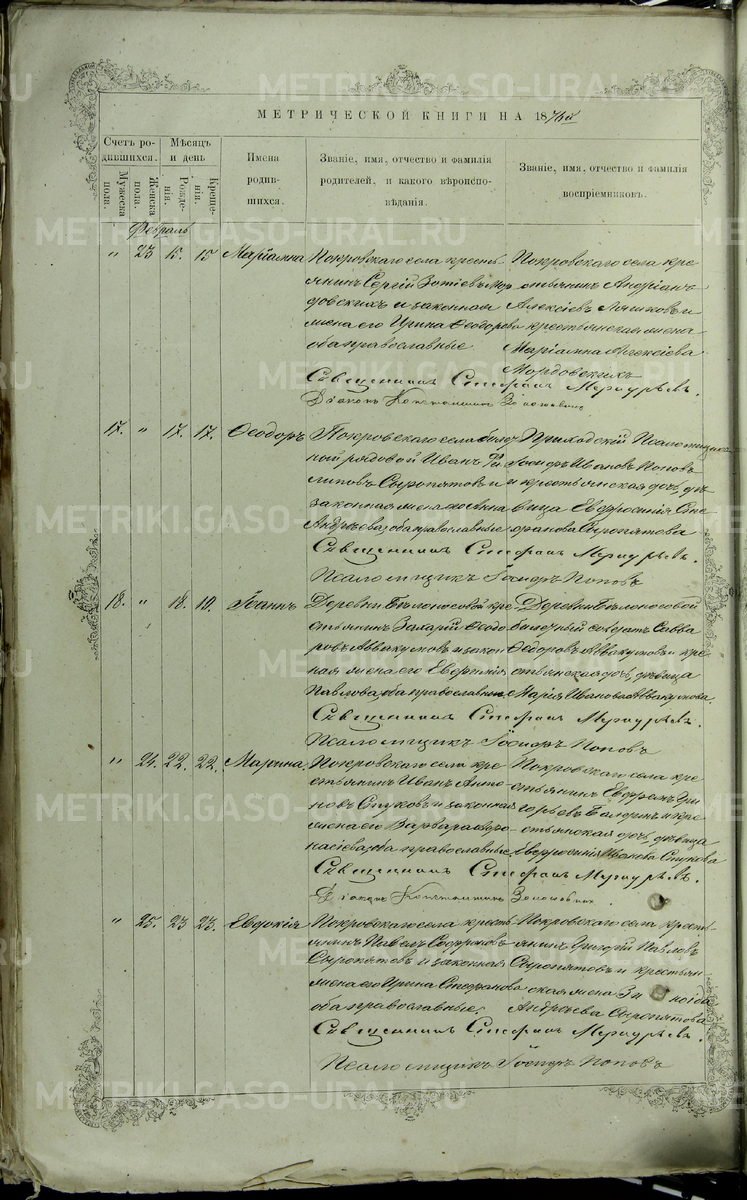 МЕТРИЧЕСКОЙ КНИГИ НА 1876й
Счетъ родившихся.
Мѣсяцъ и день
Имена родившихся.
Званіе, имя, отчество и фамилія родителей, и какого вѣроисповѣданія.
Званіе, имя, отчество и фамилія воспріемниковъ.
Мужеска пола.
Женска пола.
Рожденія.
Крещенія.
Февраль
" 23 15. 15 Маріамна
Покровскаго села кресть
янинъ Сергій Зотіевъ Мор
довскихъ и законная
жена его Ирина Ѳеодорова
оба православные
Покровскаго села кре
стьянинъ Андріанъ
Алексіевъ и
крестьянская жена
Маріамна Алексіева
Мордовскихъ
Священникъ Стефанъ Меркурьевъ.
Діаконъ Константинъ
17. " 17. 17. Ѳеодоръ
Покровскаго села билет
ный рядовой Иванъ Фи
липовъ Сыропятовъ и
законная жена его Анна
Андрѣева, оба православные
Приходскій Псаломщикъ
Іосифъ Ивановъ Поповъ
и крестьянская дочь дѣ
вица Евфросинія Сте
фанова Сыропятова
Священникъ Стефанъ Меркурьевъ.
Псаломщикъ Іосифъ Поповъ
18. " 18. 19. Іоаннъ
Деревни Бѣлоносовой кре
стьянинъ Захарій Ѳеодо
ровъ Аввакумовъ и закон
ная жена его Евгенія
Павлова, оба православные
Деревни Бѣлоносовой
билетный солдатъ Савва
Ѳедоровъ Аввакумовъ и кре
стьянская дочь, дѣвица
Марія Иванова Аввакумова.
Священникъ Стефанъ Меркурьевъ.
Псаломщикъ Іосифъ Поповъ
" 24. 22. 22. Марина.
Покровскаго села кре
стьянинъ Иванъ Анто
новъ Стуковъ и законная
жена его Варвара
оба православные
Покровскаго села кре
стьянинъ Ефремъ Гри
горьевъ и кре
стьянская дочь, дѣвица
Евфросинія Иванова Стукова
Священникъ Стефанъ Меркурьевъ.
Діаконъ Константинъ
" 25. 23 23. Евдокія
Покровскаго села кресть
янинъ Павелъ Софроновъ
Сыропятовъ и законная
жена его Ирина Стефанова
оба православные.
Покровскаго села кресть
янинъ Григорій Павловъ
Сыропятовъ и крестьян
ская жена Зиновія
Андрѣева Сыропятова
Священникъ Стефанъ Меркурьевъ.
Псаломщикъ Іосифъ Поповъ
METRIKI.GASO-URAL.RU